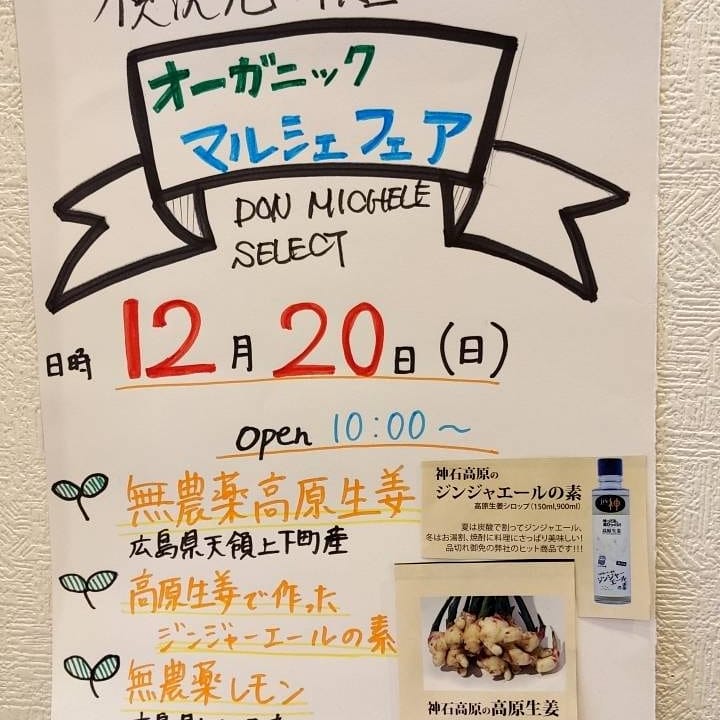 オーガニック
マルシェフェア
DON MICHELE
SELECT
日時 12月20日(日)
open 10:00～
無農薬高原生姜
広島県天領上下町産
高原生姜で作った
ジンジャーエールの素
無農薬レモン
神石高原の
ジンジャエールの素
高原生姜シロップ(150ml,900ml)
夏は炭酸で割ってジンジャエール、
冬はお湯割、焼酎に料理にさっぱり美味しい!
品切れ御免の弊社のヒット商品です!!!
神
高原生姜
ジンジャエール
の素
神石高原の高原生姜